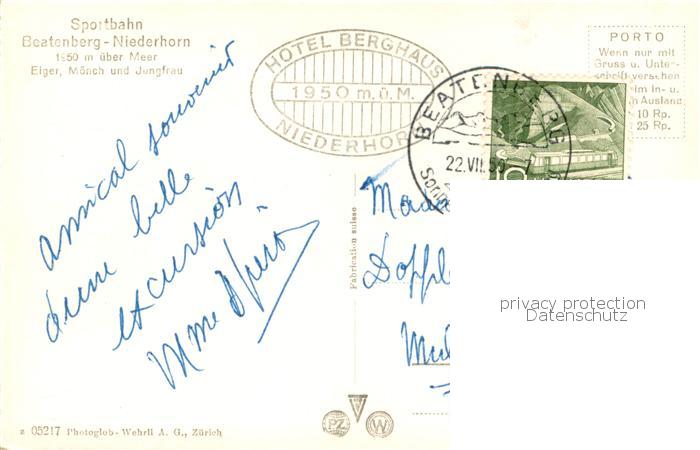 Sportbahn
Beatenberg-Niederhorn
1950 m über Meer
Eiger, Mönch und Jungfrau
HOTEL BERGHAUS
1950 m.ü.M.
NIEDERHORN
BEATENBERG
22.VII.50
PORTO
Wenn nur mit
Gruss u. Unter-
schrift versehen
im In- u.
Ausland
10 Rp.
25 Rp.
10
Amical souvenir
d'une belle
excursion
Mme
Fabrication suisse
Doppl
privacy protection
Datenschutz
PZ W
z 05217 Photoglob-Wehrli A. G., Zürich